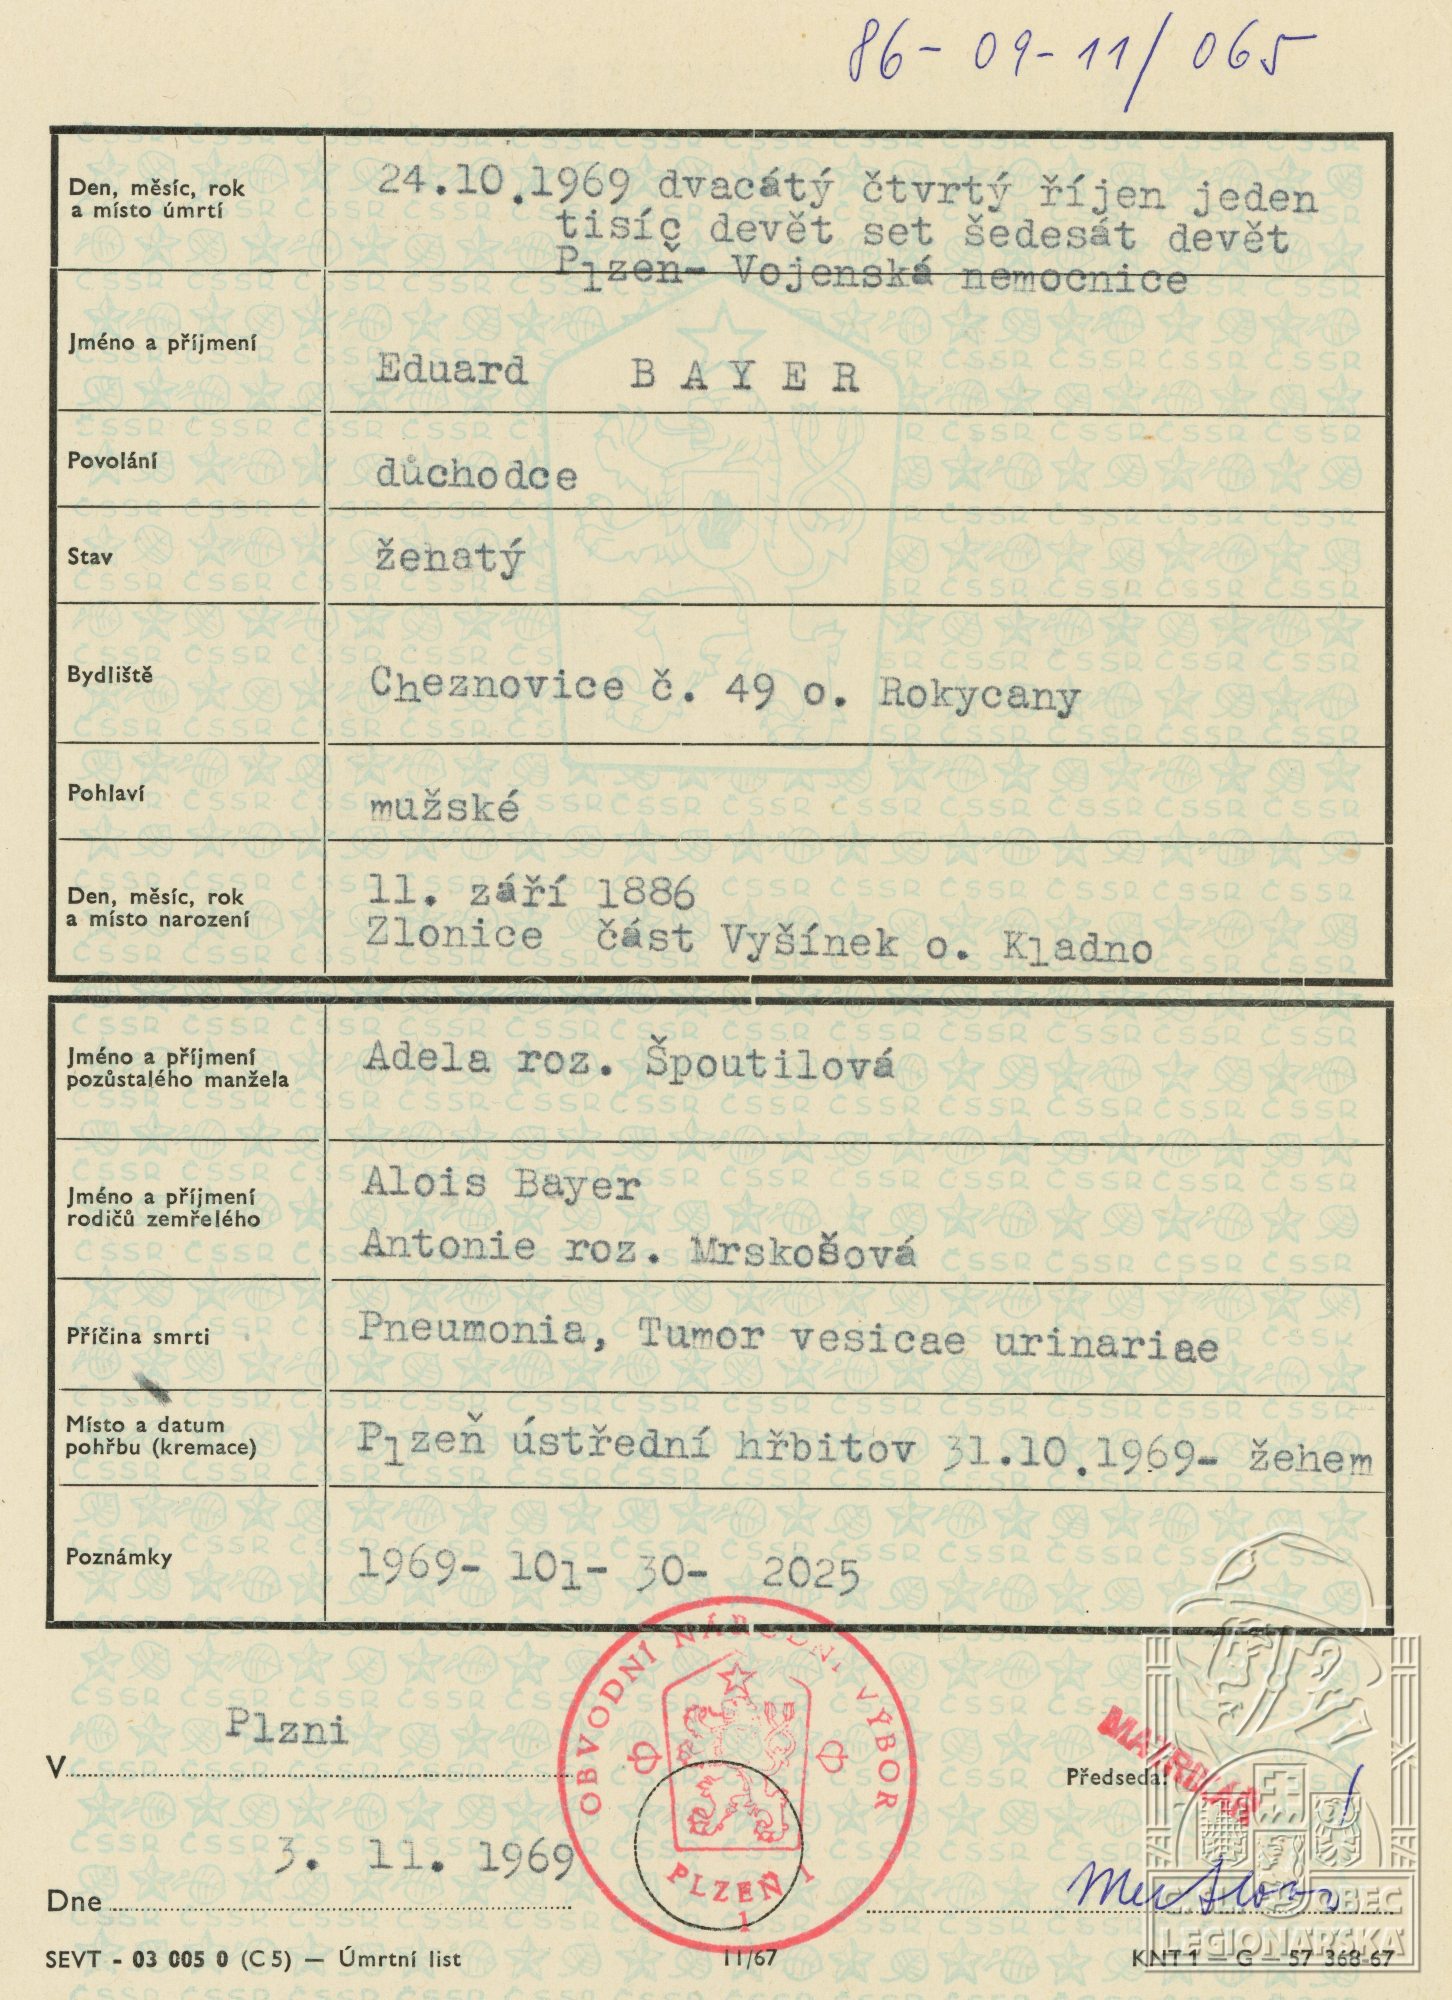 86-09-11/065
Den, měsíc, rok
a místo úmrtí
24.10.1969 dvacátý čtvrtý říjen jeden
tisíc devět set šedesát devět
Plzeň- Vojenská nemocnice
Jméno a příjmení
Eduard B A Y E R
Povolání
důchodce
Stav
ženatý
Bydliště
Cheznovice č. 49 o. Rokycany
Pohlaví
mužské
Den, měsíc, rok
a místo narození
11. září 1886
Zlonice část Vyšínek o. Kladno
Jméno a příjmení
pozůstalého manžela
Adela roz. Špoutilová
Jméno a příjmení
rodičů zemřelého
Alois Bayer
Antonie roz. Mrskošová
Příčina smrti
Pneumonia, Tumor vesicae urinariae
Místo a datum
pohřbu (kremace)
Plzeň ústřední hřbitov 31.10.1969- žehem
Poznámky
1969- 101- 30- 2025
OBVODNÍ NÁRODNÍ VÝBOR
PLZEŇ 1
1
V Plzni
Předseda:
Dne 3. 11. 1969
OBEC
LEGIONÁŘSKÁ
SEVT - 03 005 0 (C 5) — Úmrtní list
11/67
KNT 1 — G — 57 368-67